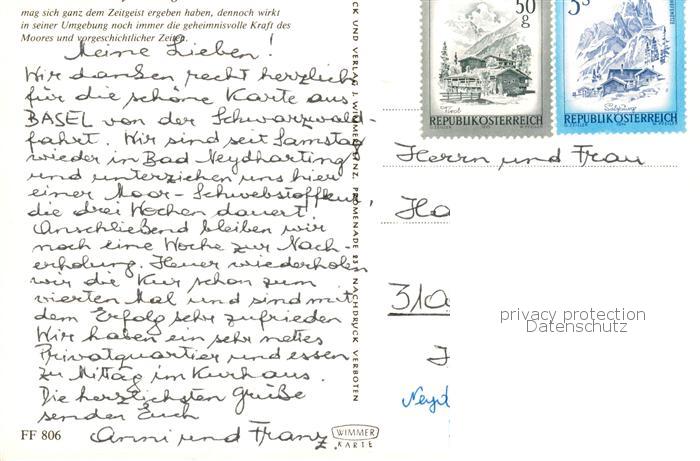 mag sich ganz dem Zeitgeist ergeben haben, dennoch wirkt
in seiner Umgebung noch immer die geheimnisvolle Kraft des
Moores und vorgeschichtlicher Zeiten.
Meine Lieben!
Wir danken recht herzlich
für die schöne Karte aus
BASEL von der Schwarzwald-
fahrt. Wir sind seit Samstag
wieder in Bad Neydharting
und unterziehen uns hier
einer Moor-Schwebstoffkur,
die drei Wochen dauert.
Anschließend bleiben wir
noch eine Woche zur Nach-
erholung. Heuer wiederholen
wir die Kur schon zum
vierten Mal und sind mit
dem Erfolg sehr zufrieden
Wir haben ein sehr nettes
Privatquartier und essen
zu Mittag im Kurhaus.
Die herzlichsten Grüße
senden Euch
Anni und Franz.
FF 806
WIMMER
KARTE
CK UND VERLAG J. WIMMER, LINZ, PROMENADE 23 NACHDRUCK VERBOTEN
50 g
Tirol
REPUBLIK ÖSTERREICH
5 S
Salzburg
REPUBLIK ÖSTERREICH
Herrn und Frau
Ha
310
Neyd
privacy protection
Datenschutz